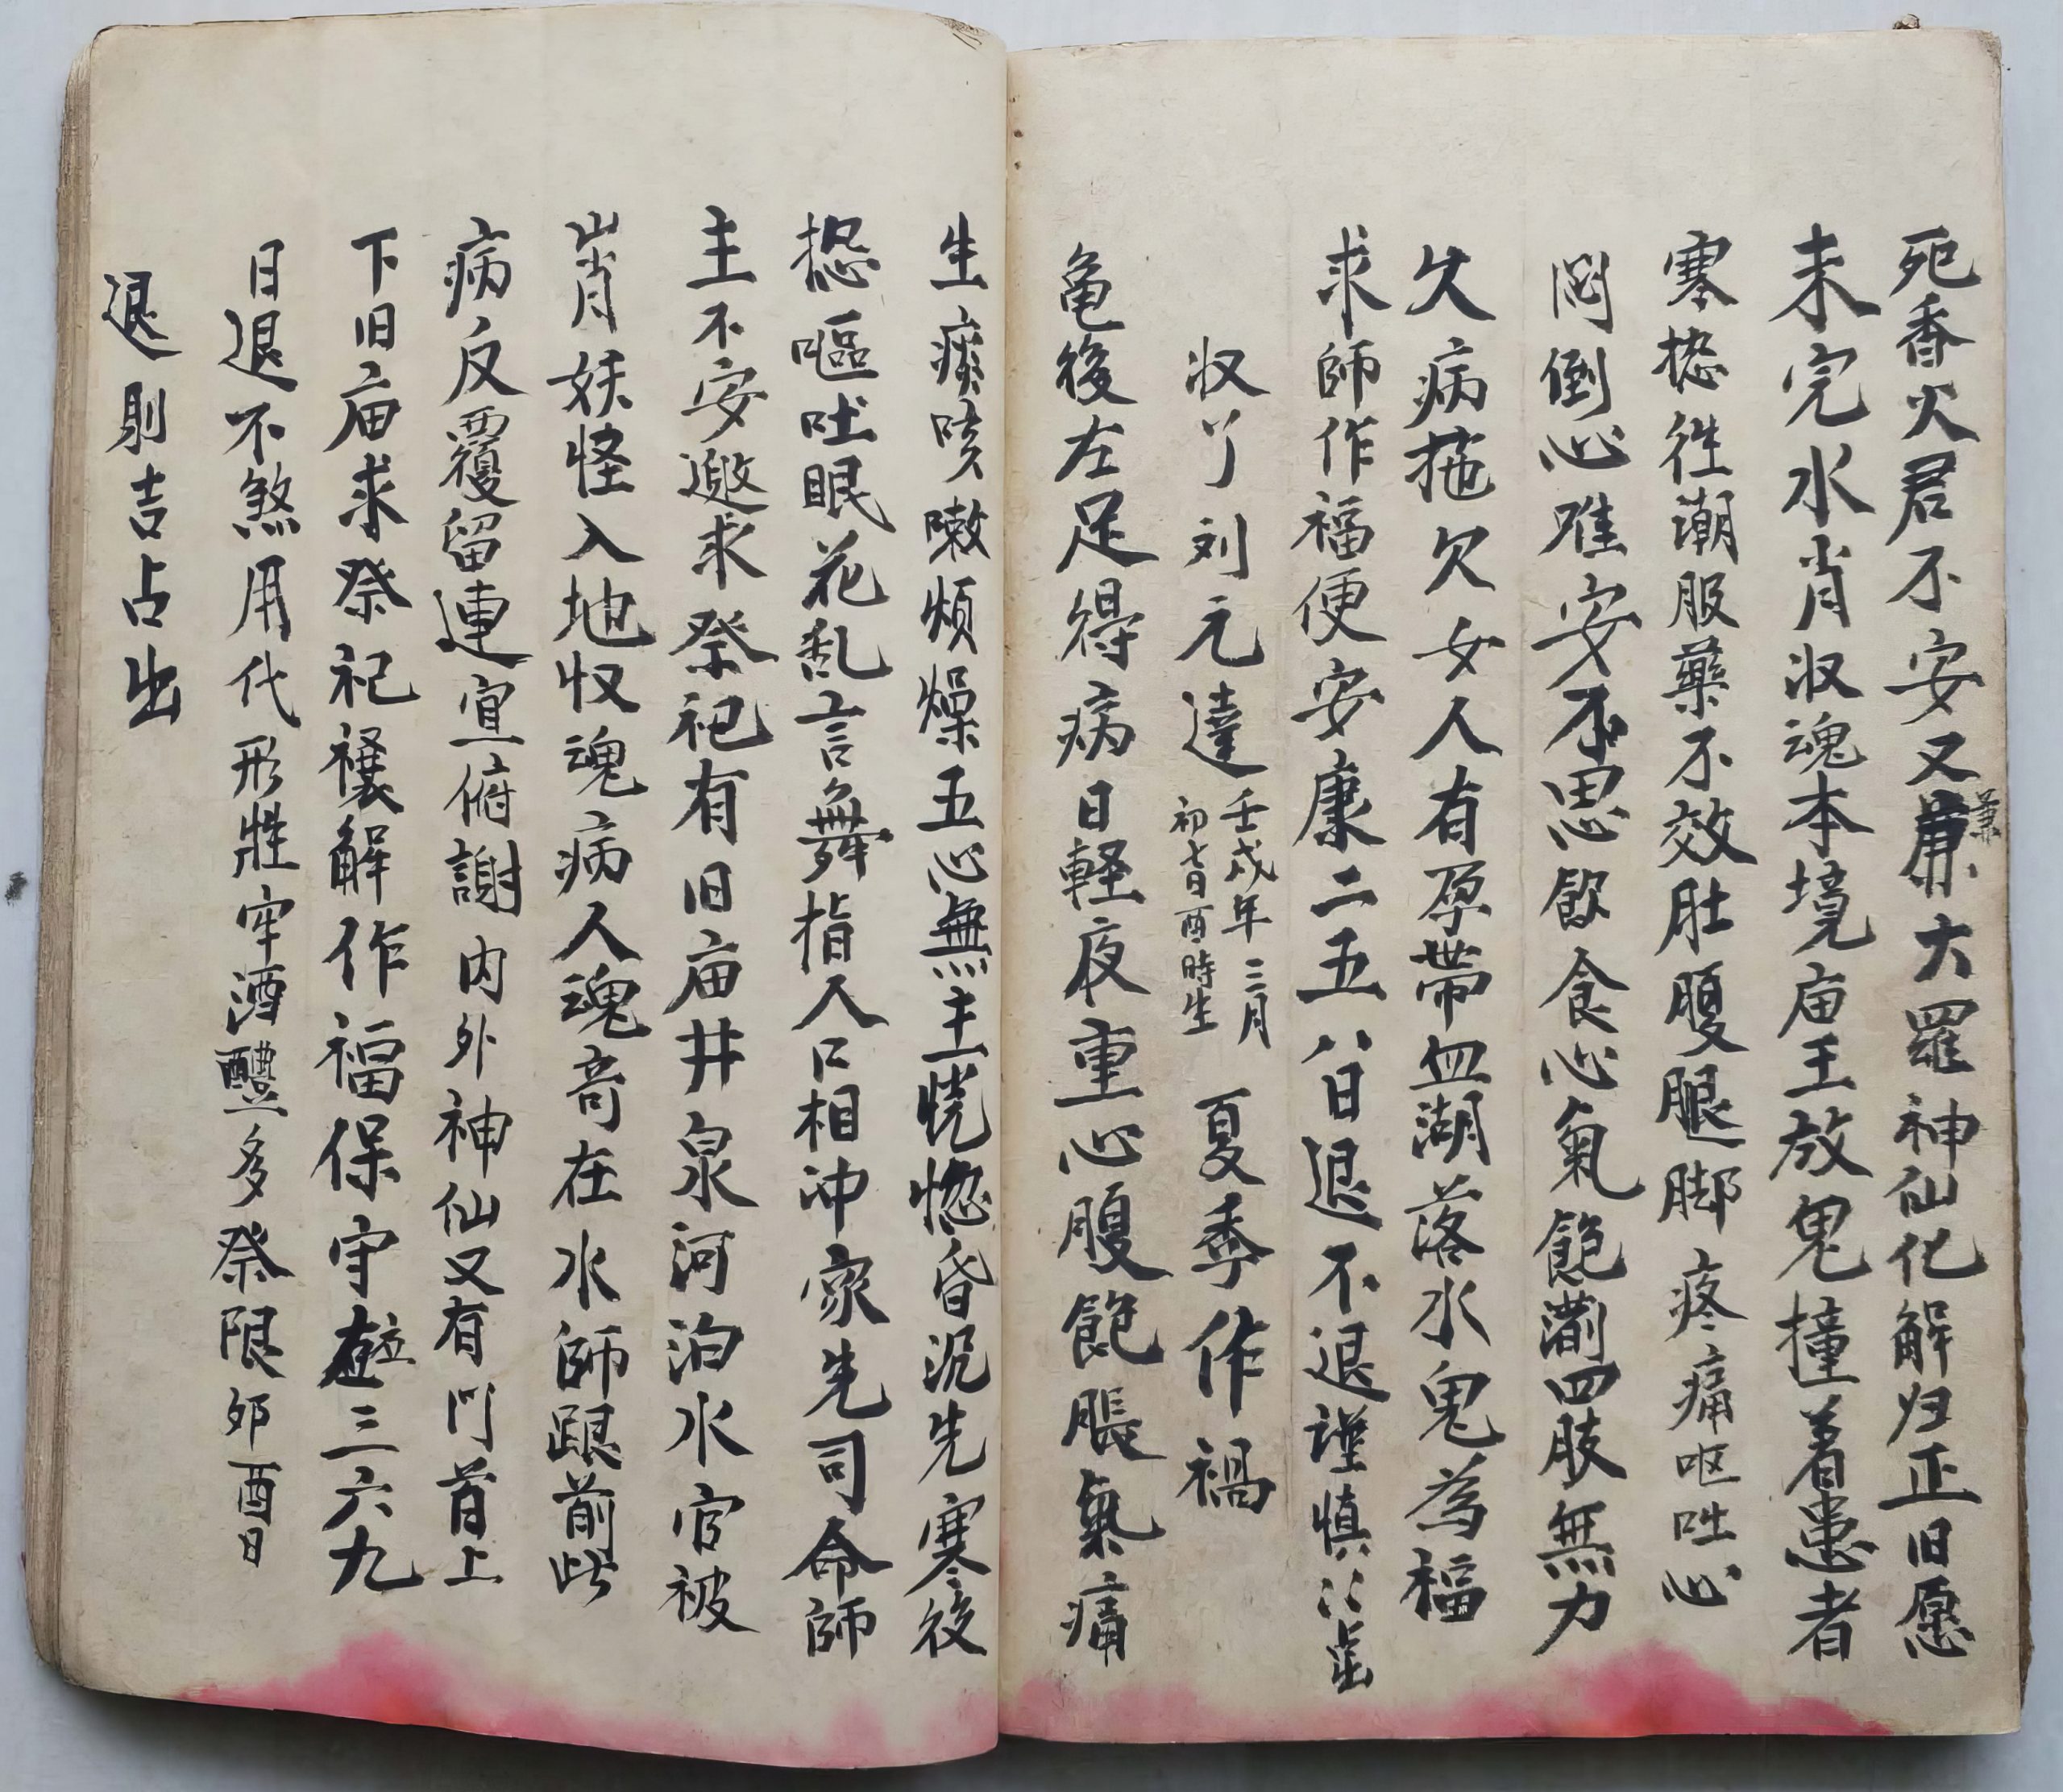 死香火君不安又兼大羅神仙化解归正旧愿
兼
未完水肖収魂本境庙王放鬼撞着患者
寒𢙣徃潮服藥不效肚腹腿脚疼痛呕吐心
悶倒心难安不思飲食心氣飽滿四肢無力
久病拖欠女人有孕帶血湖落水鬼為福
求師作福便安康二五八日退不退謹慎
収丫刘元達
壬戍年三月
初七日酉時生
夏季作禍
龟後左足得病日軽夜重心腹飽脹氣痛
生痰咳嗽煩燥五心無主恍惚昏沉先寒後
嘔吐眼花乱言舞指人口相冲家先司命師
主不安邀求祭祀有旧庙井泉河泊水官被
山肖妖怪入地収魂病人魂奇在水師跟前此
病反覆留連宜俯謝内外神仙又有门首上
下旧庙求祭祀禳解作福保守三六九
日退不煞用代形牲牢酒醴多祭限卯酉日
退則吉占出